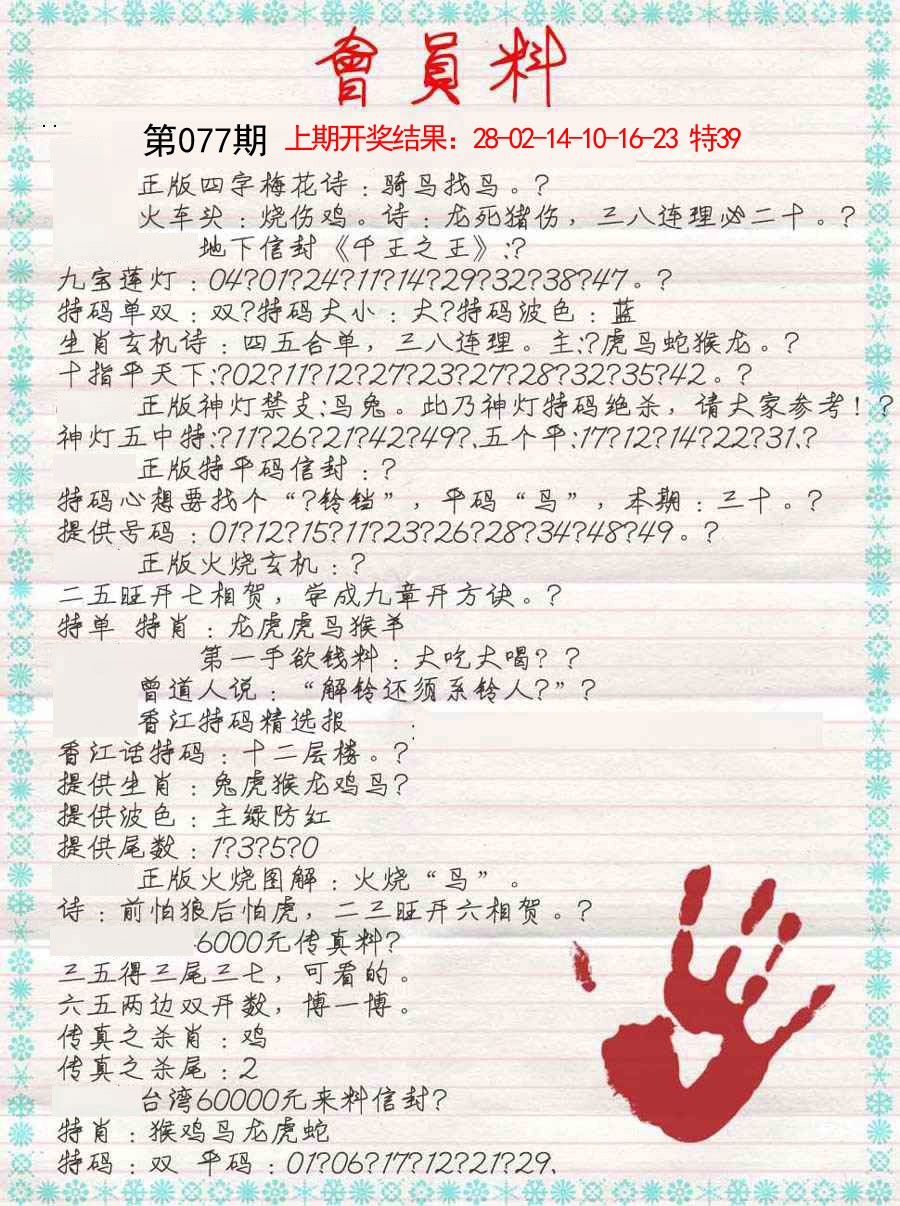 會員料
第077期 上期开奖结果：28-02-14-10-16-23 特39
正版四字梅花诗：骑鸟找鸟。?
火车头：烧伤鸡。诗：龙死猪伤，三八连理必二十。?
地下信封《千王之王》:?
九宝莲灯：04?01?24?11?14?29?32?38?47。?
特码单双：双?特码大小：大?特码波色：蓝
生肖玄机诗：四五合单，三八连理。主:?虎鸟蛇猴龙。?
十指平天下:?02?11?12?27?23?27?28?32?35?42。?
正版神灯禁支:鸟兔。此乃神灯特码绝杀，请大家参考！?
神灯五中特:?11?26?21?42?49?.五个平:17?12?14?22?31.?
正版特平码信封：?
特码心想要找个“?铃铛”，平码“鸟”，本期：三十。?
提供号码：01?12?15?11?23?26?28?34?48?49。?
正版火烧玄机：?
二五旺开七相贺，学成九章开方诀。?
特单 特肖：龙虎虎鸟猴羊
第一手欲钱料：大吃大喝? ?
曾道人说：“解铃还须系铃人?”?
香江特码精选报 :
香江话特码：十二层楼。?
提供生肖：兔虎猴龙鸡鸟?
提供波色：主绿防红
提供尾数：1?3?5?0
正版火烧图解：火烧“鸟”。
诗：前怕狼后怕虎，二三旺开六相贺。?
6000元传真料?
三五得三尾三七，可看的。
六五两边双开数，博一博。
传真之杀肖：鸡
传真之杀尾：2
台湾60000元来料信封?
特肖：猴鸡鸟龙虎蛇
特码：双 平码：01?06?17?12?21?29.